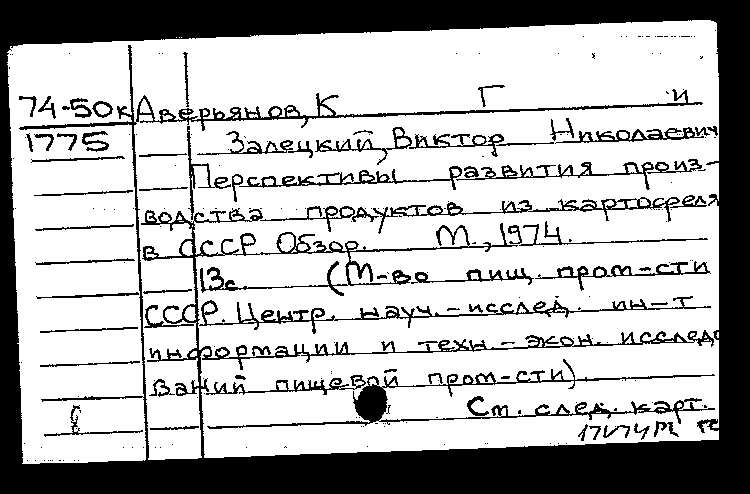 74-50к Аверьянов, К Г и
1775 Залецкий, Виктор Николаевич
Перспективы развития произ-
водства продуктов из картофеля
в СССР. Обзор. М., 1974.
13с. (М-во пищ. пром-сти
СССР. Центр. науч.-исслед. ин-т
информации и техн.-экон. исследо
ваний пищевой пром-сти)
8 См. след. карт.